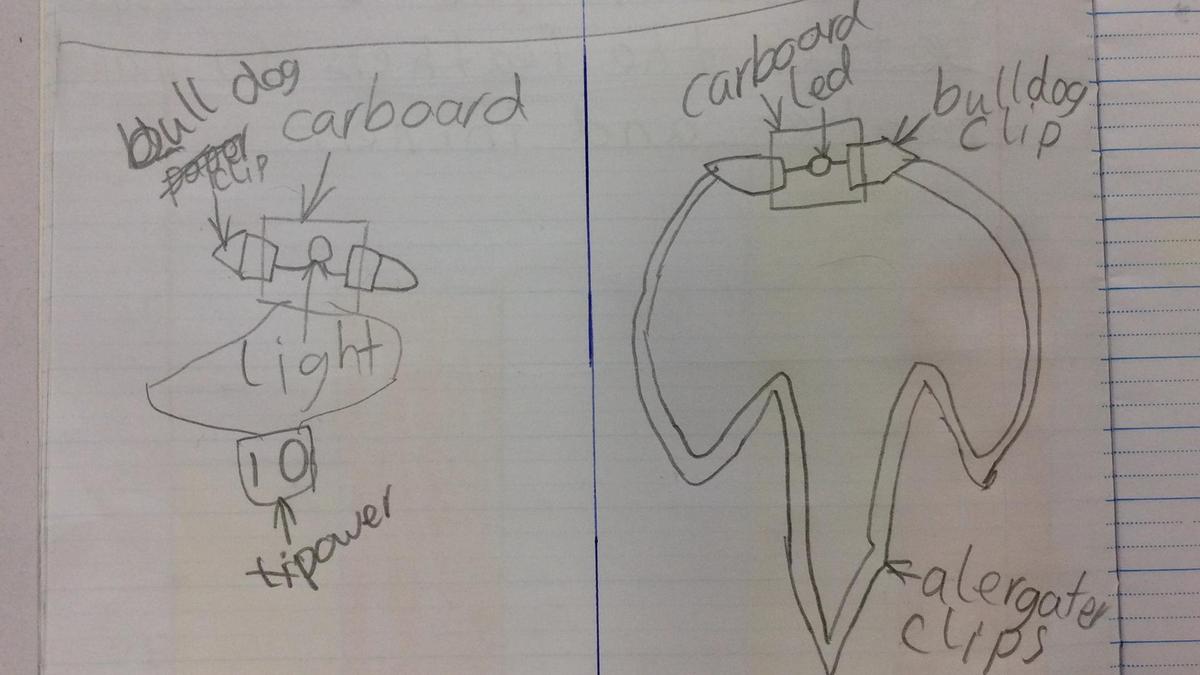 bull dog
paper
clip
carboard
light
10
tipower
carboard
led
bulldog
clip
alergater
clips